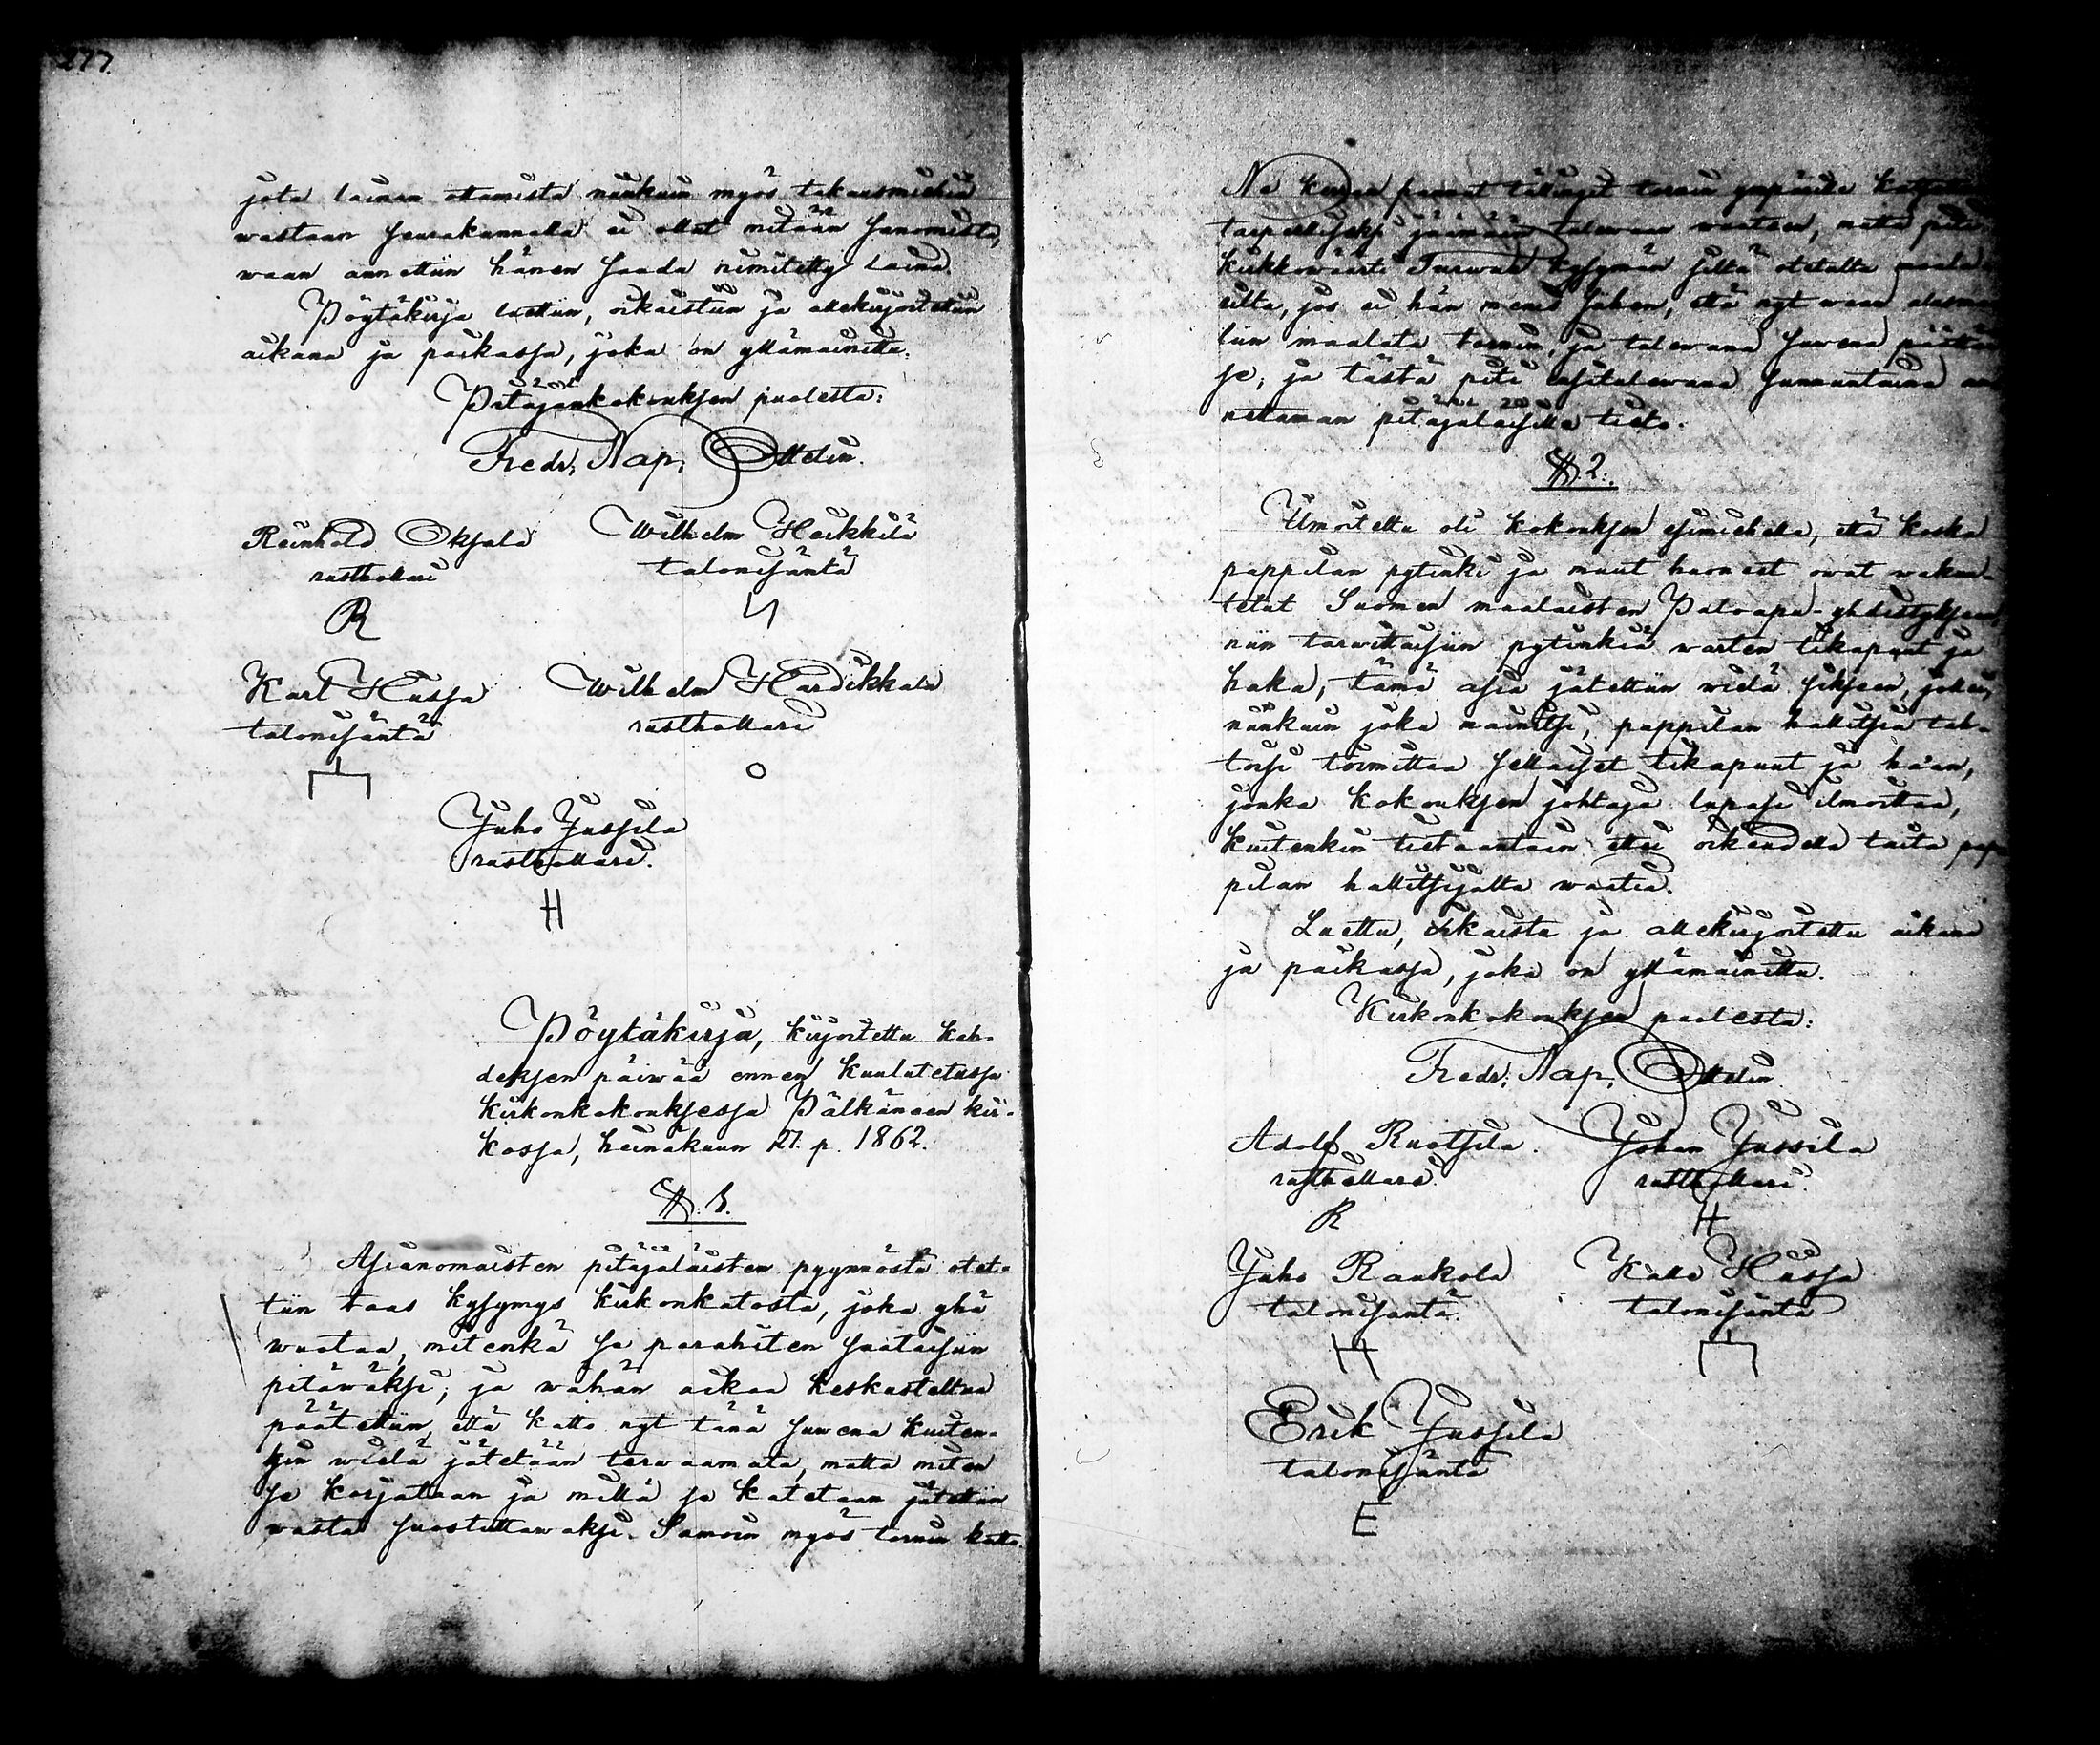 277.
jota lainan ottamista niinkuin myös takausmiehiä
wastaan seurakunnalla ei ollut mitään sanomista,
waan annettiin hänen saada nimitetty laina.
Pöytäkirja luettiin, oikaistiin ja allekirjoitettiin
aikana ja paikassa, joka on yllämainittu.
Pitäjänkokouksen puolesta:
Fredr. Nap. Ottelin.
Reinhold Okjala Wilhelm Heikkilä
rusthollari talonisäntä
R
Karl Hussa Wilhelm Hardikkala
talonisäntä rusthollari
Juho Jussila
rusthollari.
H
Pöytäkirja, kirjoitettu kah-
deksen päiwää ennen kuulutetussa
kirkonkokouksessa Pälkäneen kir-
kossa, heinäkuun 27. p. 1862.
§. 1.
Asianomaisten pitäjäläisten pyynnöstä otet-
tiin taas kysymys kirkonkatosta, joka yhä
wuotaa, mitenkä se parahiten saataisiin
pitäwäksi; ja wähän aikaa keskusteltua
päätettiin, että katto nyt tänä suwena kuiten-
kin wielä jätetään terwaamata, mutta miten
se korjataan ja millä se katetaan jätettiin
wasta suostuttawaksi. Samoin myös tornin katto.
Ne tornin ympärille
tarpeelliseksi jäämään talewaan wuoteen, mutta piti
kirkkowäärti Turwan kysymän siltä otetulta maala-
rilta, jos ei hän mene siihen, että nyt waan
tiin maalata tornin, ja talewana suwena
se; ja tästä piti ensitulewana sunnuntaina an-
nettaman pitäjäläisille tieto.
§. 2.
Ilmoitettu oli kokouksen esimiehelle, että koska
pappilan pytinki ja muut huoneet owat wakuu-
tetut Suomen maalaisten Paloapu-yhdistyksessä,
niin tarwittaisiin pytinkiä warten tikapuut ja
haka; tämä asia jätettiin wielä sikseen, jolleï,
niinkuin joku mainitsi, pappilan hallitsia tah-
toisi toimittaa sellaiset tikapuut ja haan,
jonka kokouksen johtaja lupasi ilmoittaa,
kuitenkin tiettäwäksi ettei oikeudella taita pap-
pilan hallitsijalta waatia.
Luettu, oikaistu ja allekirjoitettu aikana
ja paikassa, joka on yllämainittu.
Kirkonkokouksen puolesta:
Fredr. Nap. Ottelin
Adolf Ruotsila. Johan Jussila
rusthollari. rusthollari.
R H
Juho Raukola Kalle Hussa
talonisäntä. talonisäntä
H
Erik Jussila
talonisäntä
E